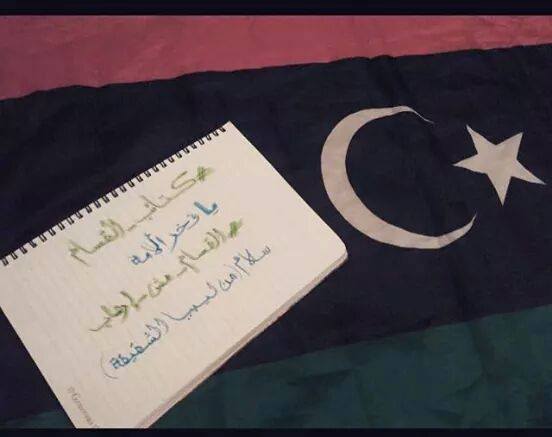 #كتائب_القسام
يا فخر الأمة
#القسام_مش_إرهاب
سلام (من ليبيا الشقيقة)